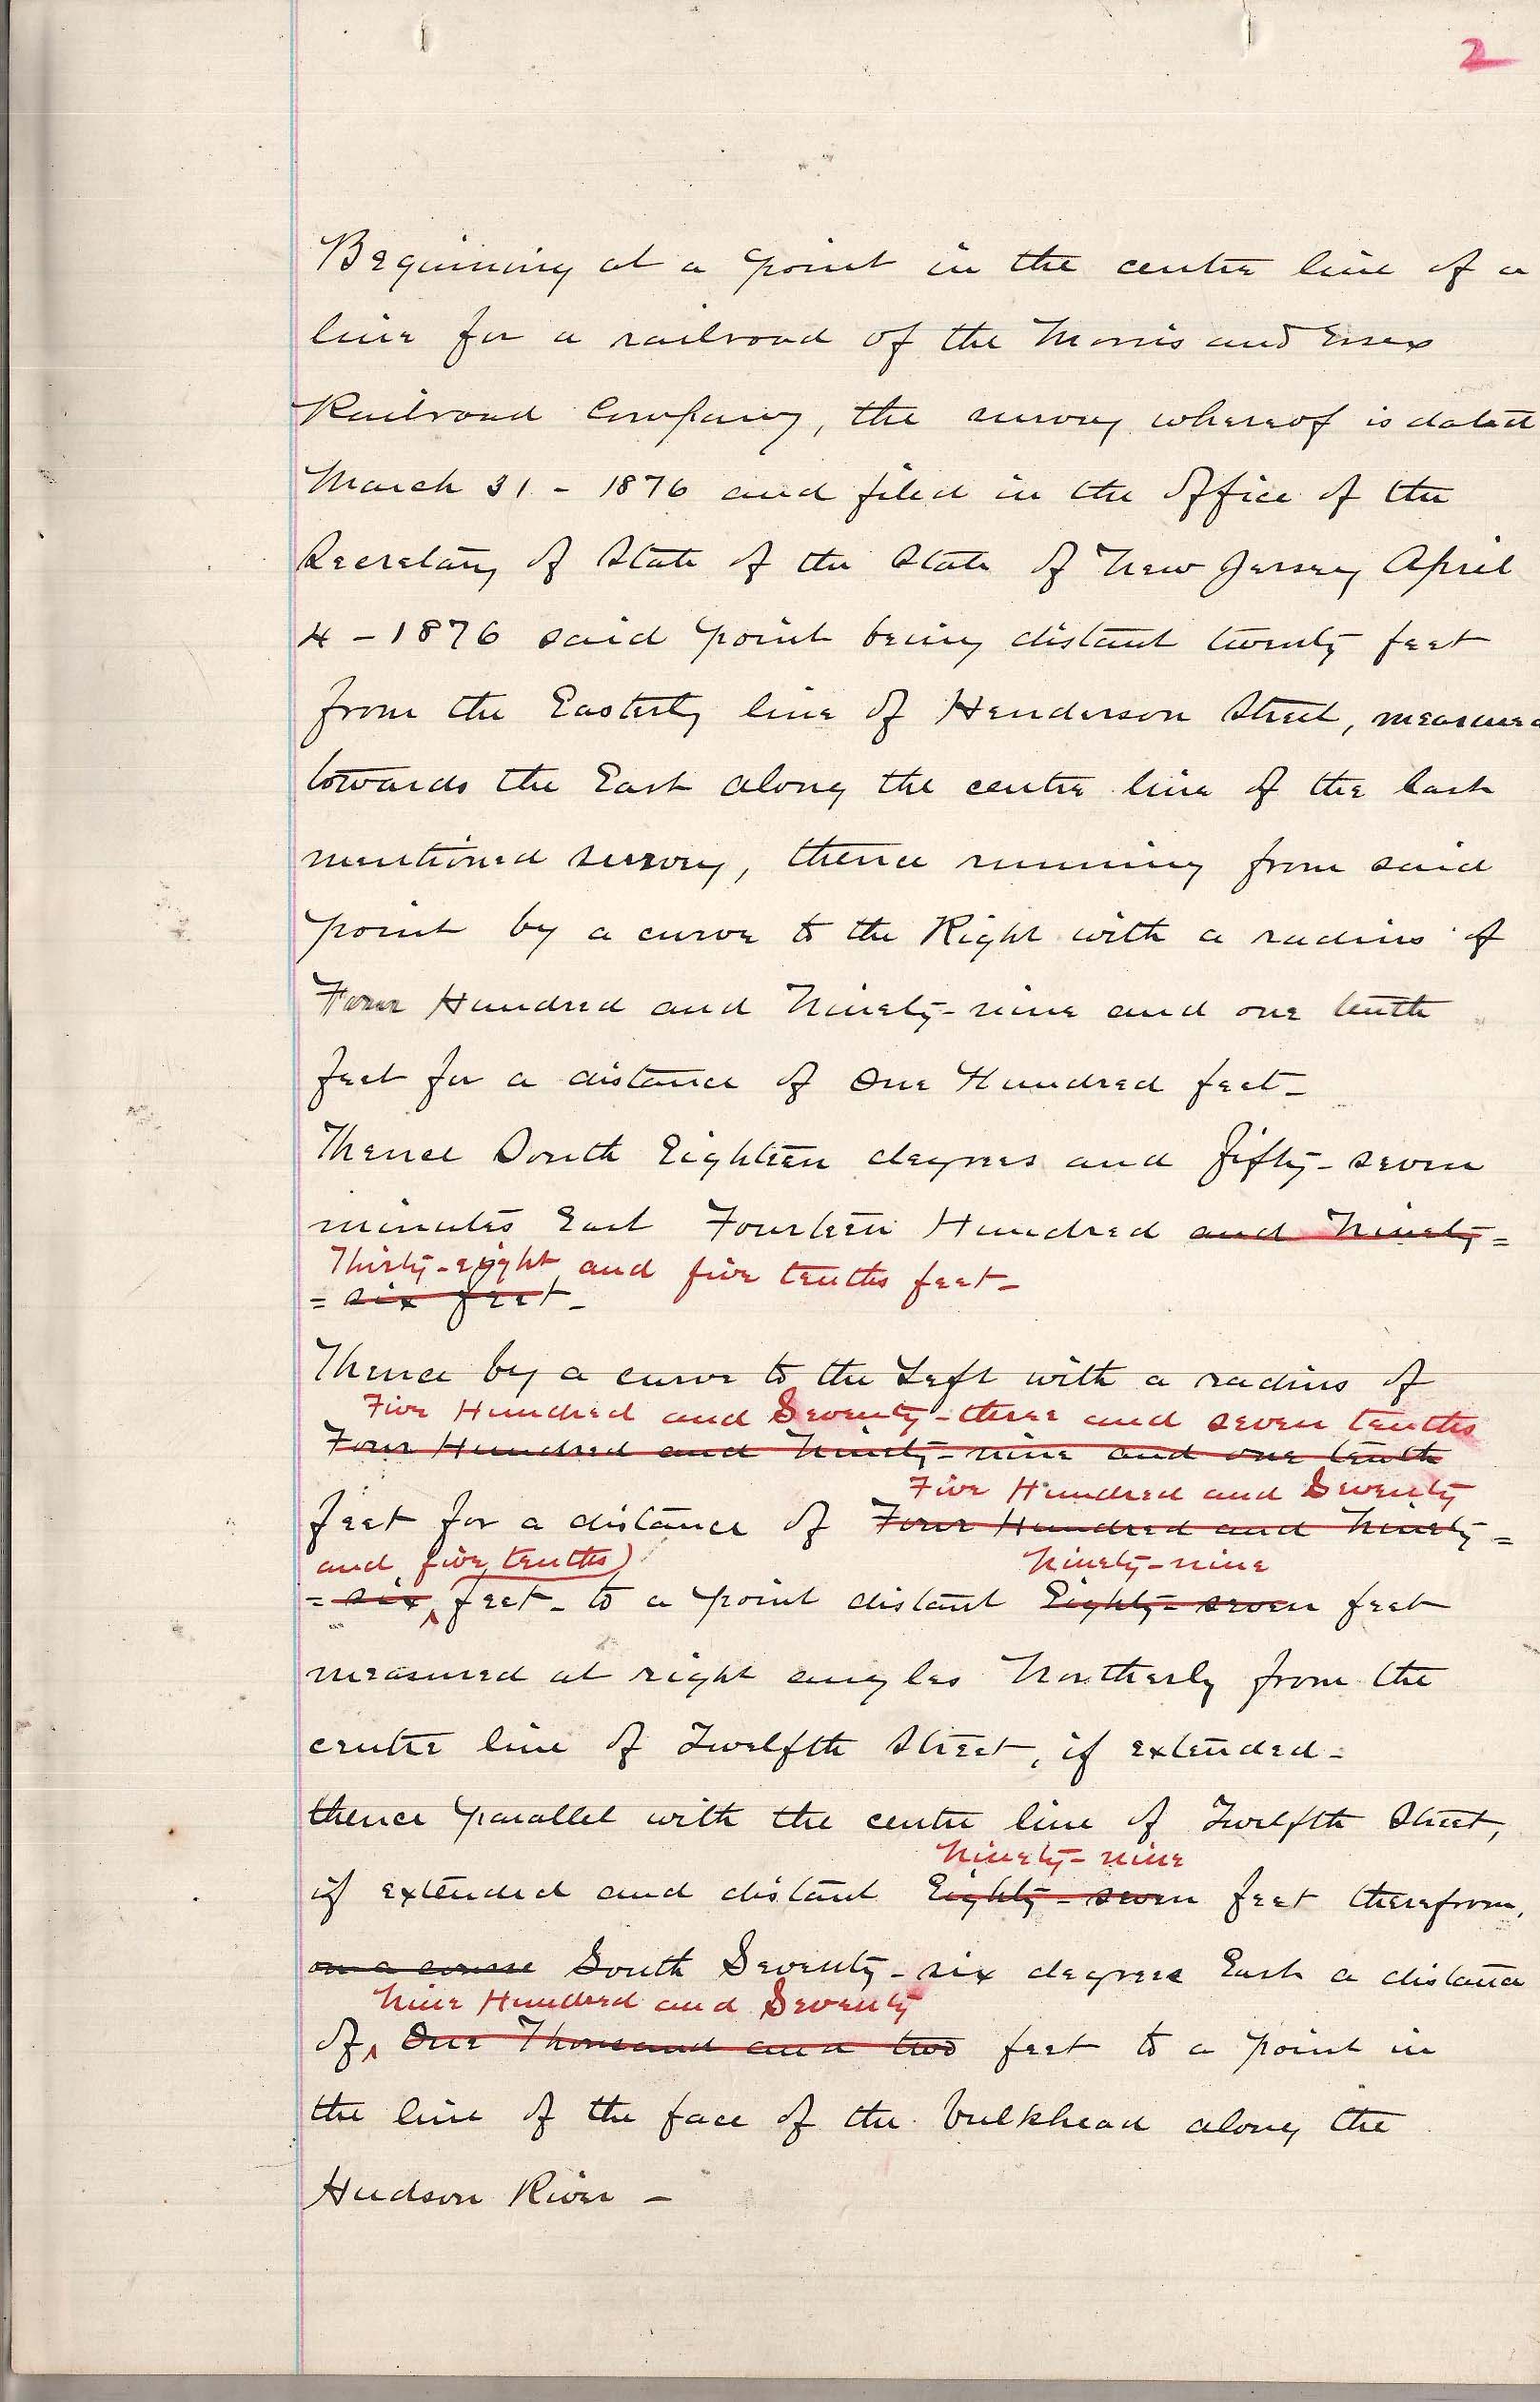 2
Beginning at a point in the centre line of a
line for a railroad of the Morris and Essex
Railroad Company, the survey whereof is dated
March 31 - 1876 and filed in the office of the
Secretary of State of the State of New Jersey April
4 - 1876 said point being distant twenty feet
from the Easterly line of Henderson Street, measured
towards the East along the centre line of the last
mentioned survey, thence running from said
point by a curve to the Right with a radius of
Four Hundred and Ninety-nine and one tenth
feet for a distance of One Hundred feet-
Thence South Eighteen degrees and fifty-seven
minutes East Fourteen Hundred and Ninety=
Thirty-eight and five tenths feet-
= six feet-
Thence by a curve to the Left with a radius of
Five Hundred and Seventy-three and seven tenths
Four Hundred and Ninety-nine and one tenth
Five Hundred and Seventy
feet for a distance of Four Hundred and Ninety=
and five tenths) Ninety-nine
= six feet- to a point distant Eighty-seven feet
measured at right angles Northerly from the
centre line of Twelfth Street, if extended-
thence parallel with the centre line of Twelfth Street,
Ninety-nine
if extended and distant Eighty-seven feet therefrom,
on a course South Seventy-six degrees East a distance
Nine Hundred and Seventy
of One Thousand and two feet to a point in
the line of the face of the bulkhead along the
Hudson River -